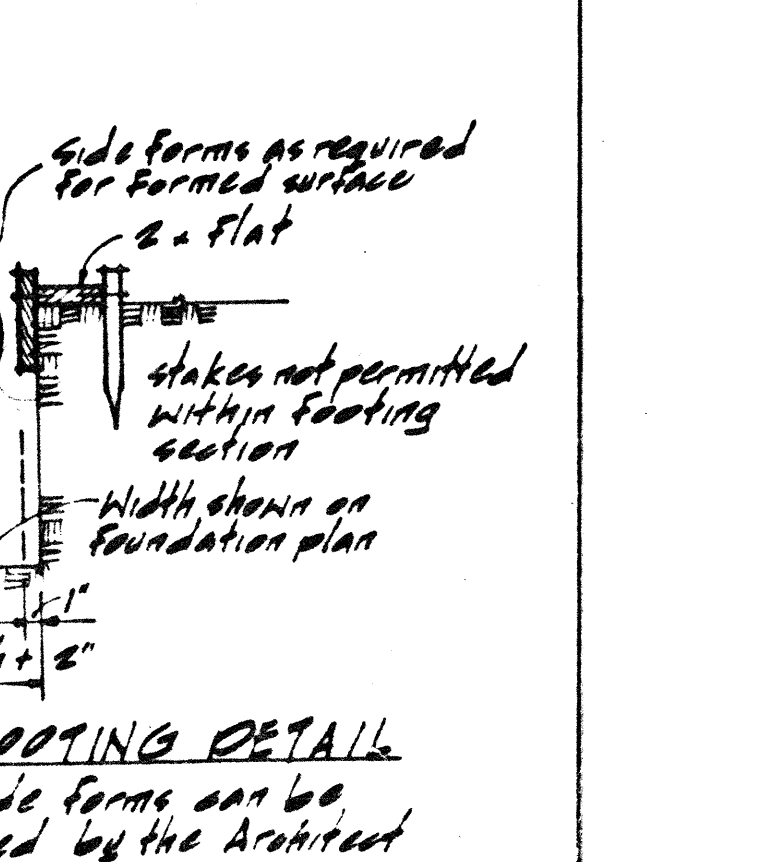 Side forms as required
for formed surface
2 x Flat
stakes not permitted
within footing
section
Width shown on
foundation plan
1"
+ 2"
OOTING DETAIL
de forms can be
ed by the Architect